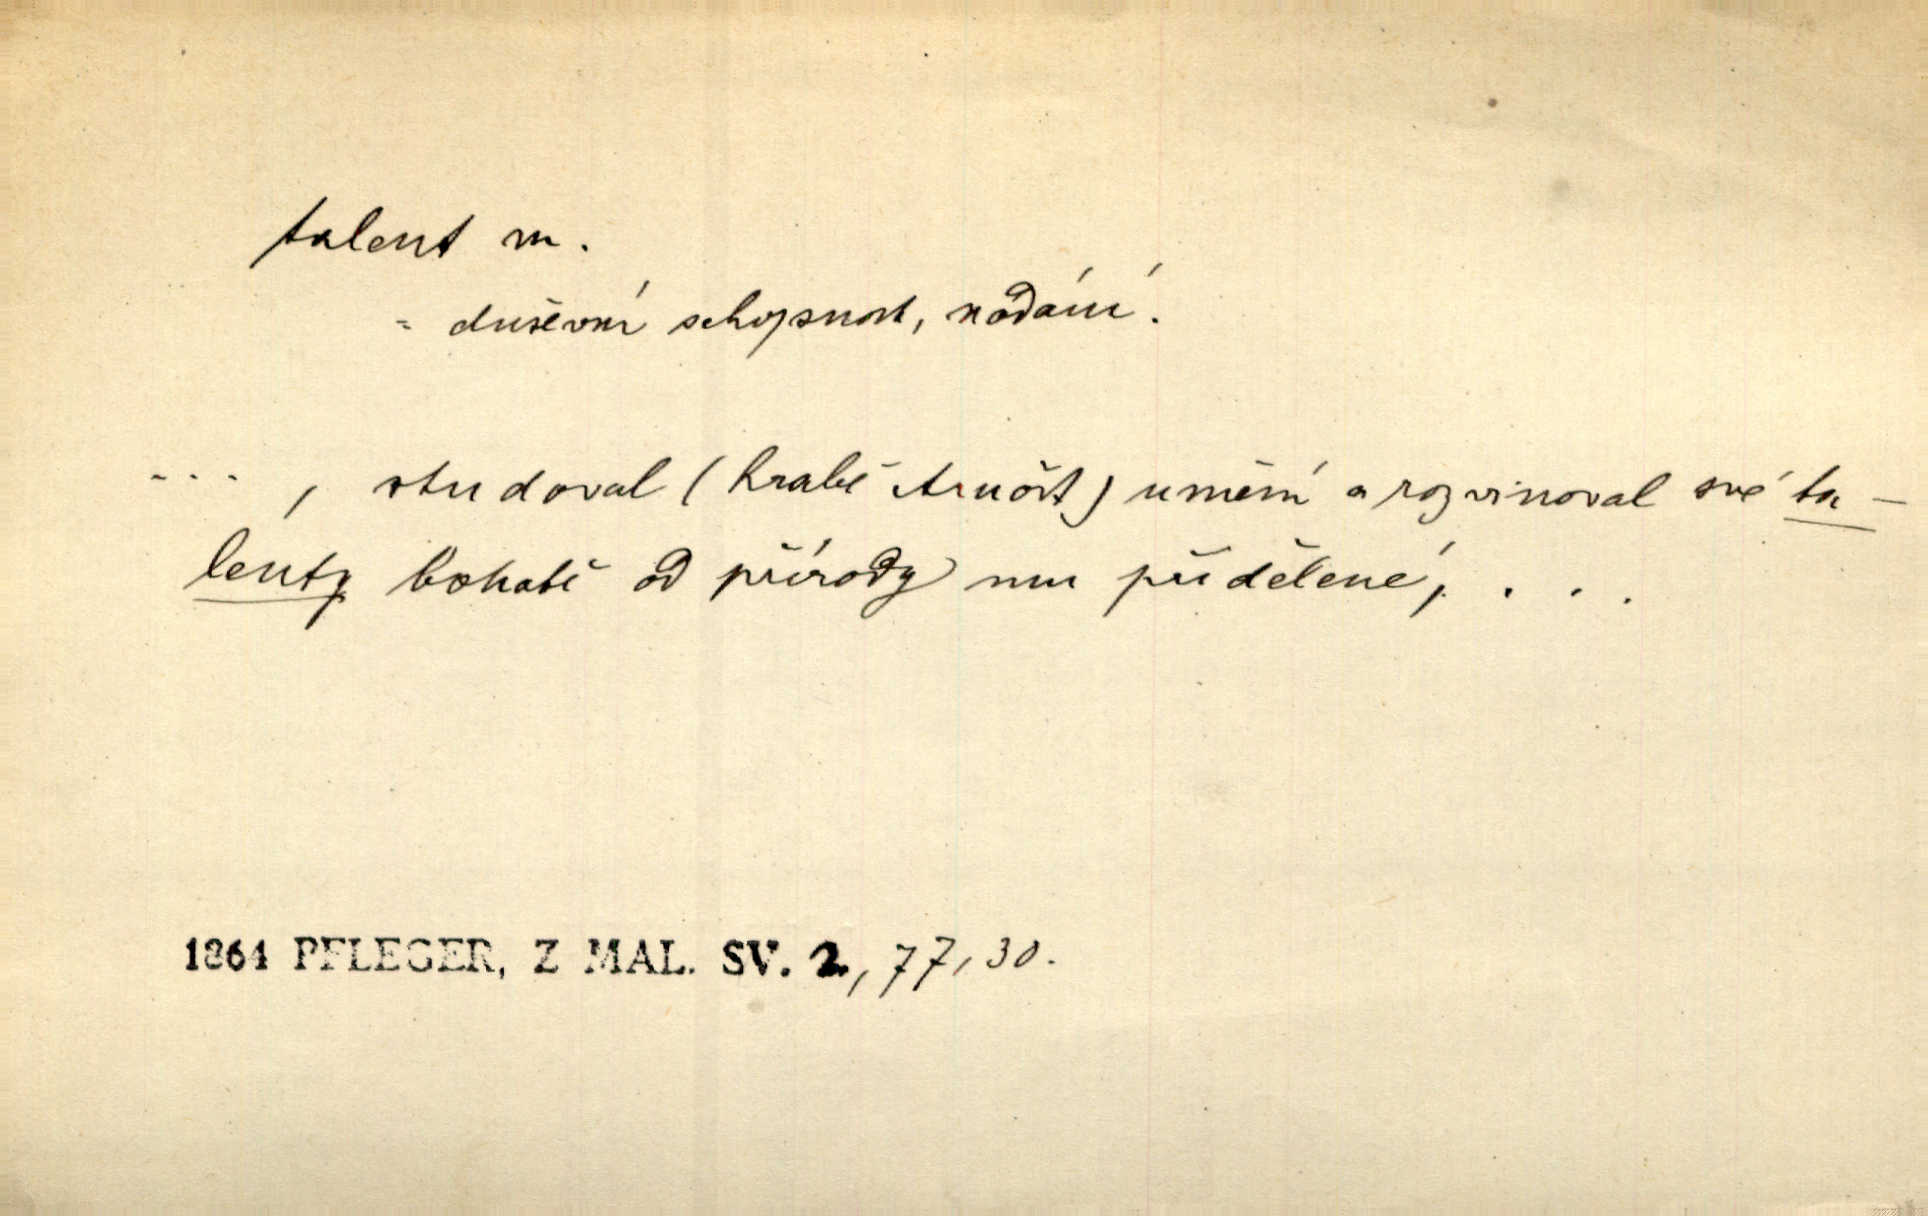 talent m.
= duševní schopnost, nadání.
..., studoval (hrabě Arnošt) umění a rozvinoval své ta-
lenty bohatě od přírody mu přidělené, ...
1864 PFLEGER, Z MAL. SV. 2, 77, 30.